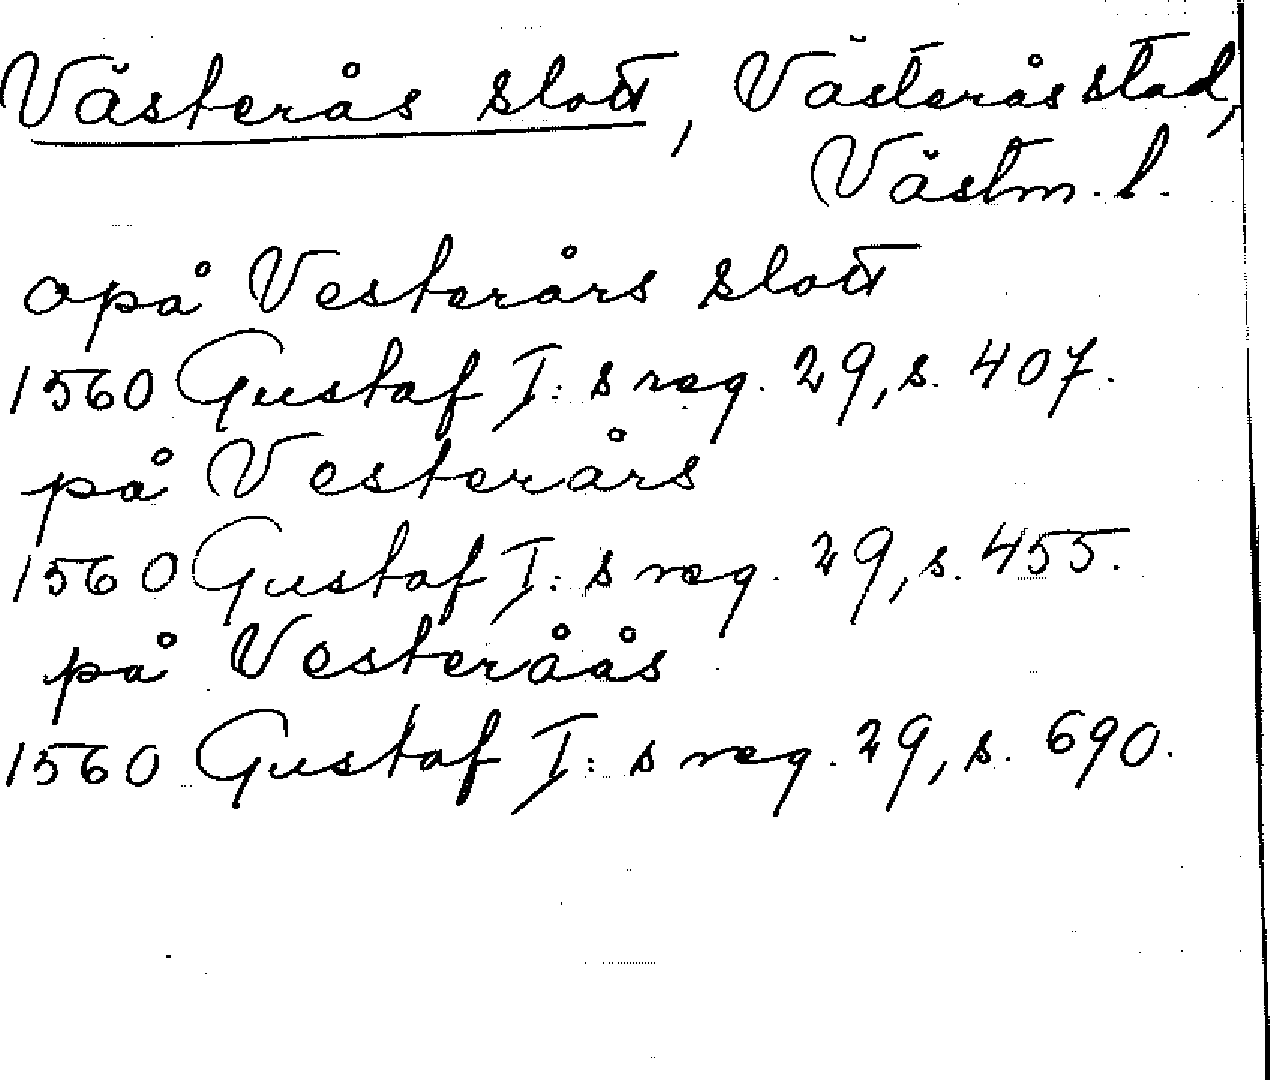 Västerås slott, Västerås stad,
Västm. l.
opå Vesterårs slott
1560 Gustaf I:s reg. 29, s. 407.
på Vesterårs
1560 Gustaf I:s reg. 29, s. 455.
på Vesteråås
1560 Gustaf I:s reg. 29, s. 690.